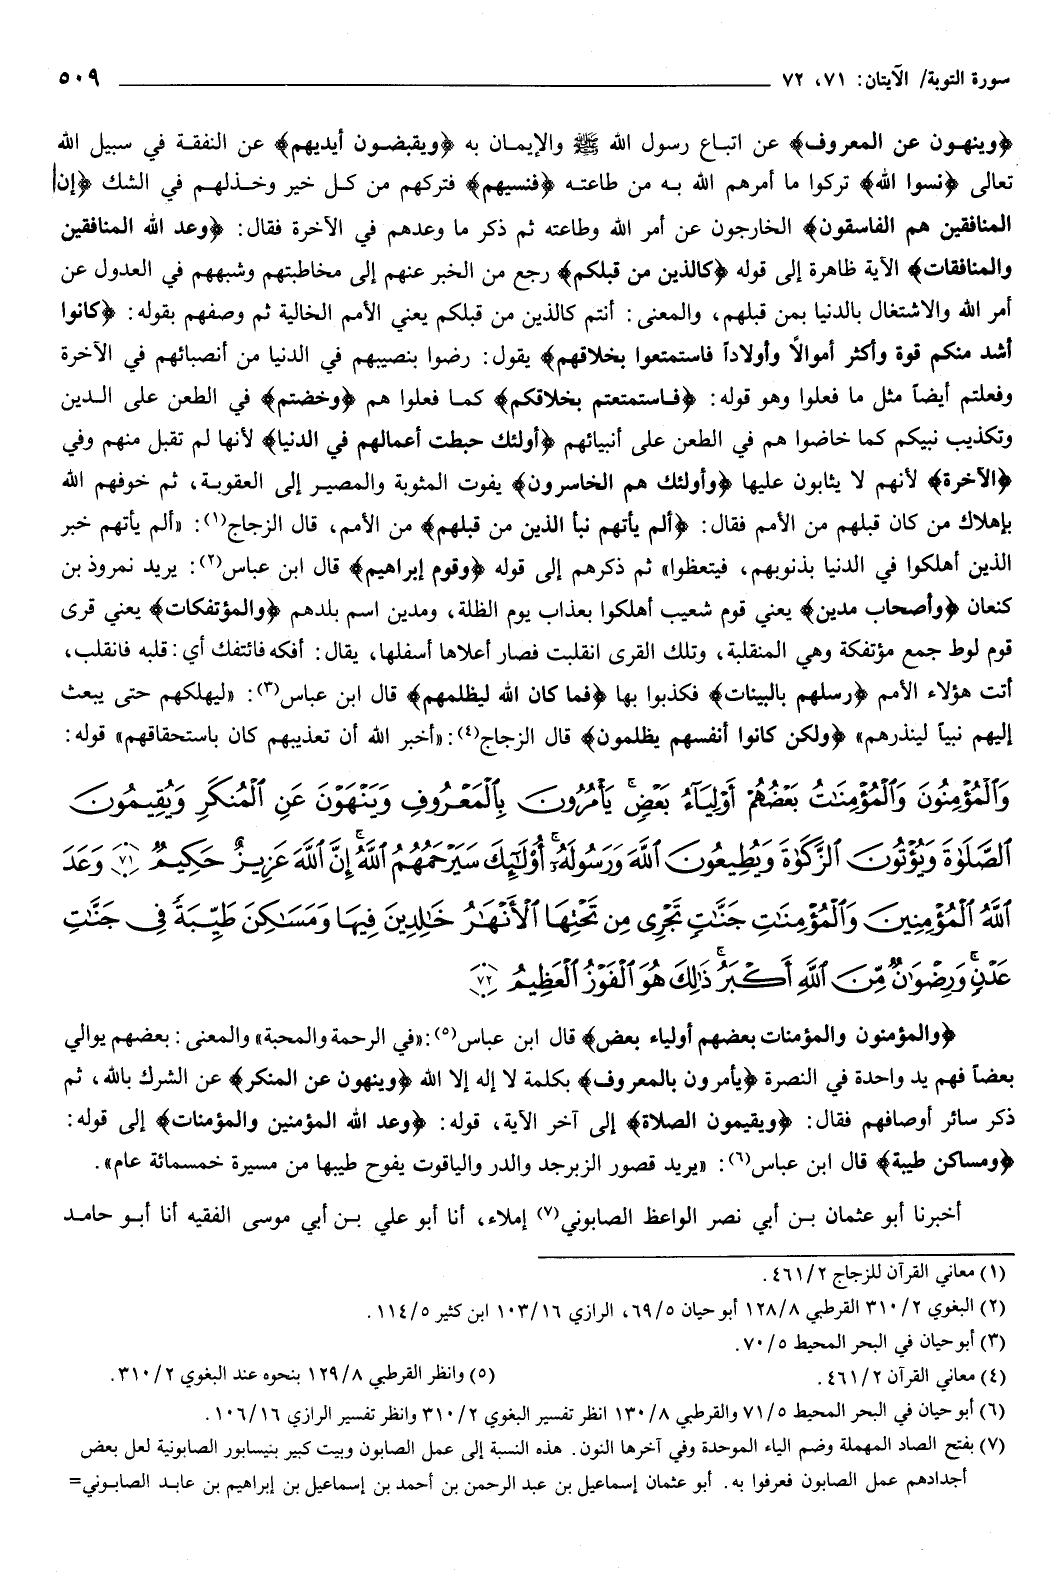 سورة التوبة/ الآيتان: ٧١، ٧٢ ٥٠٩
﴿وينهون عن المعروف﴾ عن اتباع رسول الله ﷺ والإيمان به ﴿ويقبضون أيديهم﴾ عن النفقة في سبيل الله
تعالى ﴿نسوا الله﴾ تركوا ما أمرهم الله به من طاعته ﴿فنسيهم﴾ فتركهم من كل خير وخذلهم في الشك ﴿إن
المنافقين هم الفاسقون﴾ الخارجون عن أمر الله وطاعته ثم ذكر ما وعدهم في الآخرة فقال: ﴿وعد الله المنافقين
والمنافقات﴾ الآية ظاهرة إلى قوله ﴿كالذين من قبلكم﴾ رجع من الخبر عنهم إلى مخاطبتهم وشبههم في العدول عن
أمر الله والاشتغال بالدنيا بمن قبلهم، والمعنى: أنتم كالذين من قبلكم يعني الأمم الخالية ثم وصفهم بقوله: ﴿كانوا
أشد منكم قوة وأكثر أموالاً وأولاداً فاستمتعوا بخلاقهم﴾ يقول: رضوا بنصيبهم في الدنيا من أنصبائهم في الآخرة
وفعلتم أيضاً مثل ما فعلوا وهو قوله: ﴿فاستمتعتم بخلاقكم﴾ كما فعلوا هم ﴿وخضتم﴾ في الطعن على الدين
وتكذيب نبيكم كما خاضوا هم في الطعن على أنبيائهم ﴿أولئك حبطت أعمالهم في الدنيا﴾ لأنها لم تقبل منهم وفي
﴿الآخرة﴾ لأنهم لا يثابون عليها ﴿وأولئك هم الخاسرون﴾ يفوت المثوبة والمصير إلى العقوبة، ثم خوفهم الله
بإهلاك من كان قبلهم من الأمم فقال: ﴿ألم يأتهم نبأ الذين من قبلهم﴾ من الأمم، قال الزجاج(١): «ألم يأتهم خبر
الذين أهلكوا في الدنيا بذنوبهم، فيتعظوا» ثم ذكرهم إلى قوله ﴿وقوم إبراهيم﴾ قال ابن عباس(٢): يريد نمروذ بن
كنعان ﴿وأصحاب مدين﴾ يعني قوم شعيب أهلكوا بعذاب يوم الظلة، ومدين اسم بلدهم ﴿والمؤتفكات﴾ يعني قرى
قوم لوط جمع مؤتفكة وهي المنقلبة، وتلك القرى انقلبت فصار أعلاها أسفلها، يقال: أفكه فائتفك أي: قلبه فانقلب،
أتت هؤلاء الأمم ﴿رسلهم بالبينات﴾ فكذبوا بها ﴿فما كان الله ليظلمهم﴾ قال ابن عباس(٣): «ليهلكهم حتى يبعث
إليهم نبياً لينذرهم» ﴿ولكن كانوا أنفسهم يظلمون﴾ قال الزجاج(٤): «أخبر الله أن تعذيبهم كان باستحقاقهم» قوله:
وَٱلْمُؤْمِنُونَ وَٱلْمُؤْمِنَـٰتُ بَعْضُهُمْ أَوْلِيَآءُ بَعْضٍ ۚ يَأْمُرُونَ بِٱلْمَعْرُوفِ وَيَنْهَوْنَ عَنِ ٱلْمُنكَرِ وَيُقِيمُونَ
ٱلصَّلَوٰةَ وَيُؤْتُونَ ٱلزَّكَوٰةَ وَيُطِيعُونَ ٱللَّهَ وَرَسُولَهُۥٓ ۚ أُو۟لَـٰٓئِكَ سَيَرْحَمُهُمُ ٱللَّهُ ۗ إِنَّ ٱللَّهَ عَزِيزٌ حَكِيمٌ ٧١ وَعَدَ
ٱللَّهُ ٱلْمُؤْمِنِينَ وَٱلْمُؤْمِنَـٰتِ جَنَّـٰتٍ تَجْرِى مِن تَحْتِهَا ٱلْأَنْهَـٰرُ خَـٰلِدِينَ فِيهَا وَمَسَـٰكِنَ طَيِّبَةً فِى جَنَّـٰتِ
عَدْنٍ ۚ وَرِضْوَٰنٌ مِّنَ ٱللَّهِ أَكْبَرُ ۚ ذَٰلِكَ هُوَ ٱلْفَوْزُ ٱلْعَظِيمُ ٧٢
﴿والمؤمنون والمؤمنات بعضهم أولياء بعض﴾ قال ابن عباس(٥): «في الرحمة والمحبة» والمعنى: بعضهم يوالي
بعضاً فهم يد واحدة في النصرة ﴿يأمرون بالمعروف﴾ بكلمة لا إله إلا الله ﴿وينهون عن المنكر﴾ عن الشرك بالله، ثم
ذكر سائر أوصافهم فقال: ﴿ويقيمون الصلاة﴾ إلى آخر الآية، قوله: ﴿وعد الله المؤمنين والمؤمنات﴾ إلى قوله:
﴿ومساكن طيبة﴾ قال ابن عباس(٦): «يريد قصور الزبرجد والدر والياقوت يفوح طيبها من مسيرة خمسمائة عام».
أخبرنا أبو عثمان بن أبي نصر الواعظ الصابوني(٧) إملاء، أنا أبو علي بن أبي موسى الفقيه أنا أبو حامد
(١) معاني القرآن للزجاج ٤٦١/٢.
(٢) البغوي ٣١٠/٢ القرطبي ١٢٨/٨ أبو حيان ٦٩/٥، الرازي ١٠٣/١٦ ابن كثير ١١٤/٥.
(٣) أبو حيان في البحر المحيط ٧٠/٥.
(٤) معاني القرآن ٤٦١/٢. (٥) وانظر القرطبي ١٢٩/٨ بنحوه عند البغوي ٣١٠/٢.
(٦) أبو حيان في البحر المحيط ٧١/٥ والقرطبي ١٣٠/٨ انظر تفسير البغوي ٣١٠/٢ وانظر تفسير الرازي ١٠٦/١٦.
(٧) بفتح الصاد المهملة وضم الباء الموحدة وفي آخرها النون. هذه النسبة إلى عمل الصابون وبيت كبير بنيسابور الصابونية لعل بعض
أجدادهم عمل الصابون فعرفوا به. أبو عثمان إسماعيل بن عبد الرحمن بن أحمد بن إسماعيل بن إبراهيم بن عابد الصابوني=